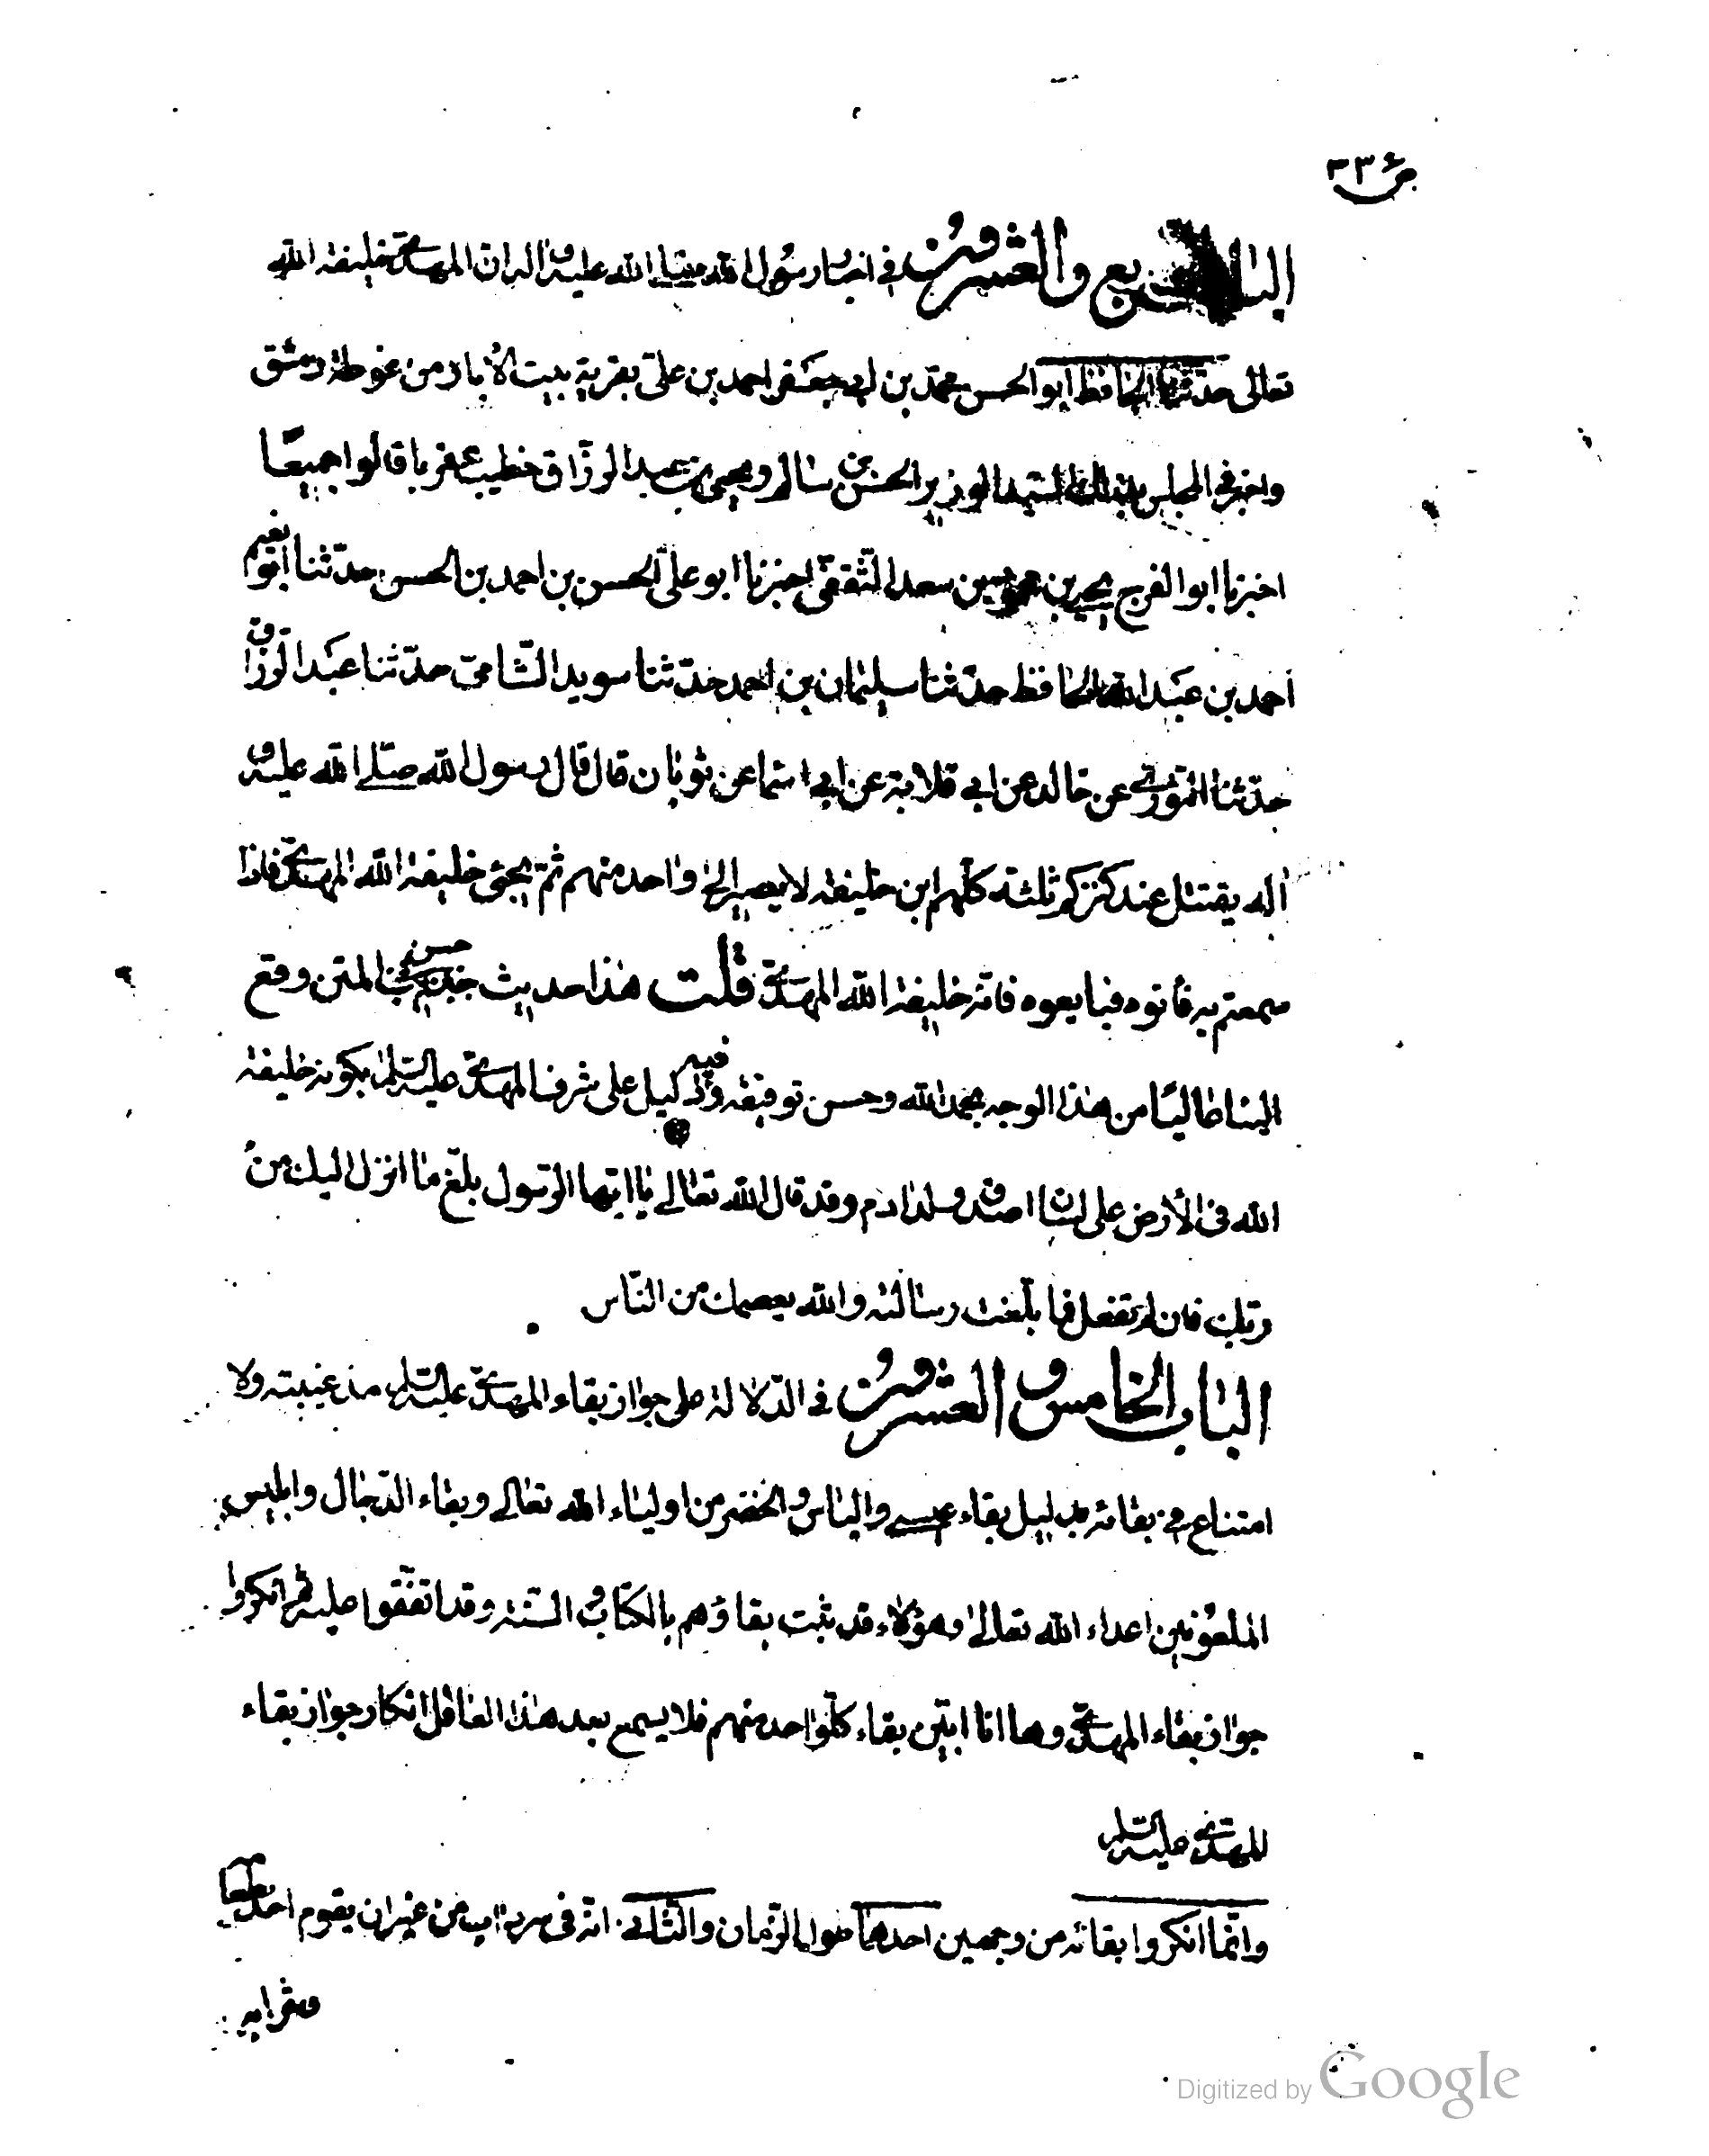 ص ٣٣
الباب الرابع والعشرون في اخبار رسول الله صلى الله عليه واله ان المهدي خليفة الله
تعالى حدثنا الحافظ ابو الحسن محمد بن ابي جعفر احمد بن علي بقرية بيت الأبار من غوطة دمشق
واخبرني المجلس السيد الوزير الحسن بن سالم ويحيى بن عبد الرزاق خطيب عقربا قالوا جميعا
اخبرنا ابو الفرج يحيى بن سعد الثقفي اخبرنا ابو علي الحسن بن احمد بن الحسن حدثنا ابو نعيم
احمد بن عبد الله الحافظ حدثنا سليمان بن احمد حدثنا سويد الشامي حدثنا عبد الرزاق
حدثنا الثوري عن خالد عن ابي قلابة عن ابي اسما عن ثوبان قال قال رسول الله صلى الله عليه و
اله يقتتل عند كنزكم ثلثة كلهم ابن خليفة لا يصير الى واحد منهم ثم يجئ خليفة الله المهدي فاذا
سمعتم به فأتوه فبايعوه فانه خليفة الله المهدي قلت هذا حديث حسن المتن وقع
الينا عاليا من هذا الوجه بحمد الله وحسن توفيقه وفيه دليل على شرف المهدي عليه السلم بكونه خليفة
الله في الأرض على لسان اصدق ولد ادم وقد قال الله تعالى يا ايها الرسول بلغ ما انزل اليك من
ربك فان لم تفعل فما بلغت رسالته والله يعصمك من الناس
الباب الخامس والعشرون في الدلالة على جواز بقاء المهدي عليه السلم مذ غيبته ولا
امتناع في بقائه بدليل بقاء عيسى والياس والخضر من اولياء الله تعالى وبقاء الدجال وابليس
الملعونين اعداء الله تعالى وهؤلاء قد ثبت بقاؤهم بالكتاب والسنة وقد اتفقوا عليه ثم انكروا
جواز بقاء المهدي وها انا ابين بقاء كل واحد منهم فلا يسمع بعد هذا العاقل انكار جواز بقاء
للمهدي عليه السلم
وانما انكروا بقائه من وجهين احدهما طول الزمان والثاني انه في سرداب من غير ان يقوم احد بطعامه
وشرابه
Digitized by Google